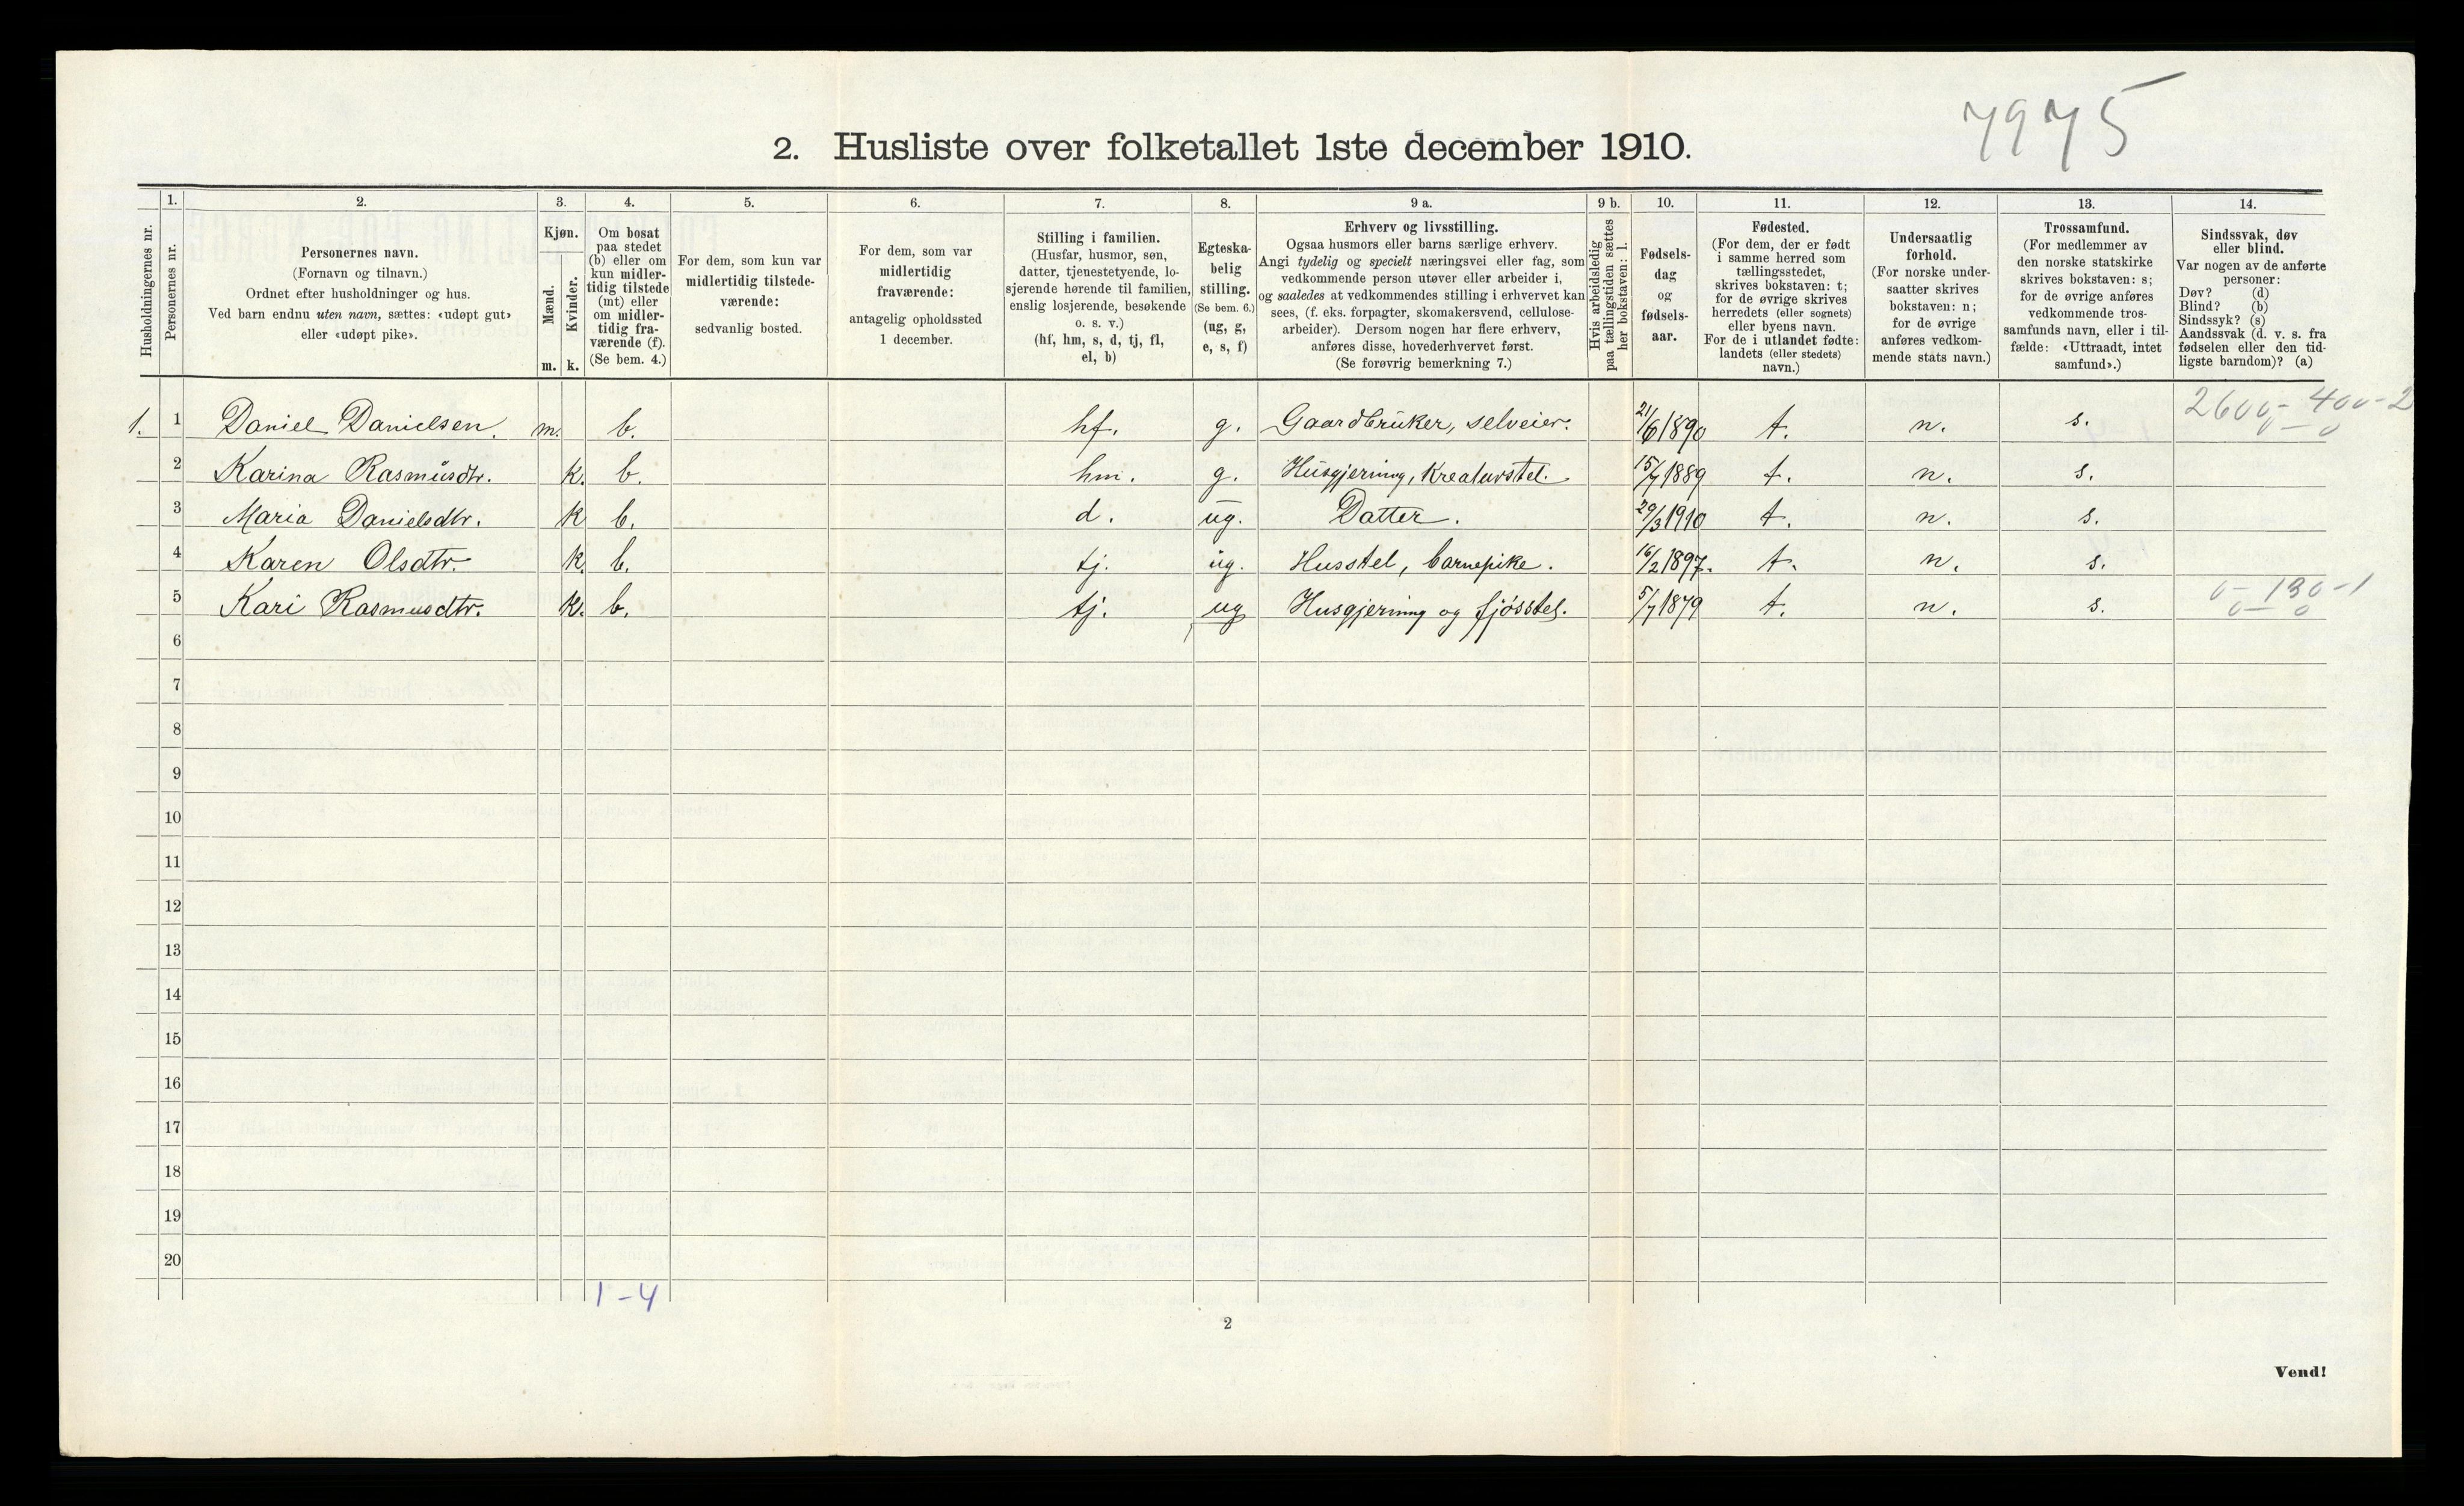 7975
2. Husliste over folketallet 1ste december 1910.
Husholdningernes nr.
1. Personernes nr.
2. Personernes navn. (Fornavn og tilnavn.) Ordnet efter husholdninger og hus. Ved barn endnu uten navn, sættes: «udøpt gut» eller «udøpt pike».
3. Kjøn. Mænd. m. Kvinder. k.
4. Om bosat paa stedet (b) eller om kun midlertidig tilstede (mt) eller om midlertidig fraværende (f). (Se bem. 4.)
5. For dem, som kun var midlertidig tilstedeværende: sedvanlig bosted.
6. For dem, som var midlertidig fraværende: antagelig opholdssted 1 december.
7. Stilling i familien. (Husfar, husmor, søn, datter, tjenestetyende, losjerende hørende til familien, enslig losjerende, besøkende o. s. v.) (hf, hm, s, d, tj, fl, el, b)
8. Egteskabelig stilling. (Se bem. 6.) (ug, g, e, s, f)
9 a. Erhverv og livsstilling. Ogsaa husmors eller barns særlige erhverv. Angi tydelig og specielt næringsvei eller fag, som vedkommende person utøver eller arbeider i, og saaledes at vedkommendes stilling i erhvervet kan sees, (f. eks. forpagter, skomakersvend, cellulosearbeider). Dersom nogen har flere erhverv, anføres disse, hovederhvervet først. (Se forøvrig bemerkning 7.)
9 b. Hvis arbeidsledig paa tællingstiden sættes her bokstaven: l.
10. Fødselsdag og fødselsaar.
11. Fødested. (For dem, der er født i samme herred som tællingsstedet, skrives bokstaven: t; for de øvrige skrives herredets (eller sognets) eller byens navn. For de i utlandet fødte: landets (eller stedets) navn.)
12. Undersaatlig forhold. (For norske undersaatter skrives bokstaven: n; for de øvrige anføres vedkommende stats navn.)
13. Trossamfund. (For medlemmer av den norske statskirke skrives bokstaven: s; for de øvrige anføres vedkommende trossamfunds navn, eller i tilfælde: «Uttraadt, intet samfund».)
14. Sindssvak, døv eller blind. Var nogen av de anførte personer: Døv? (d) Blind? (b) Sindssyk? (s) Aandssvak (d. v. s. fra fødselen eller den tidligste barndom)? (a)
1. 1 Daniel Danielsen. m. b. hf. g. Gaardbruker, selveier. 21/6 1890 t. n. s. 2600 - 400 - 2 0 - 0
2 Karina Rasmusdtr. k. b. hm. g. Husgjerning, Kreaturstel. 15/7 1889 t. n. s.
3 Maria Danielsdtr. k b. d. ug. Datter. 29/3 1910 t. n. s.
4 Karen Olsdtr. k. b. tj. ug. Husstel, barnepike. 16/2 1897. t. n. s.
5 Kari Rasmusdtr. k. b. tj. ug Husgjerning og fjøsstel. 5/7 1879 t. n. s. 0 - 130 - 1 0 - 0
6
7
8
9
10
11
12
13
14
15
16
17
18
19
20
1 - 4
2
Vend!